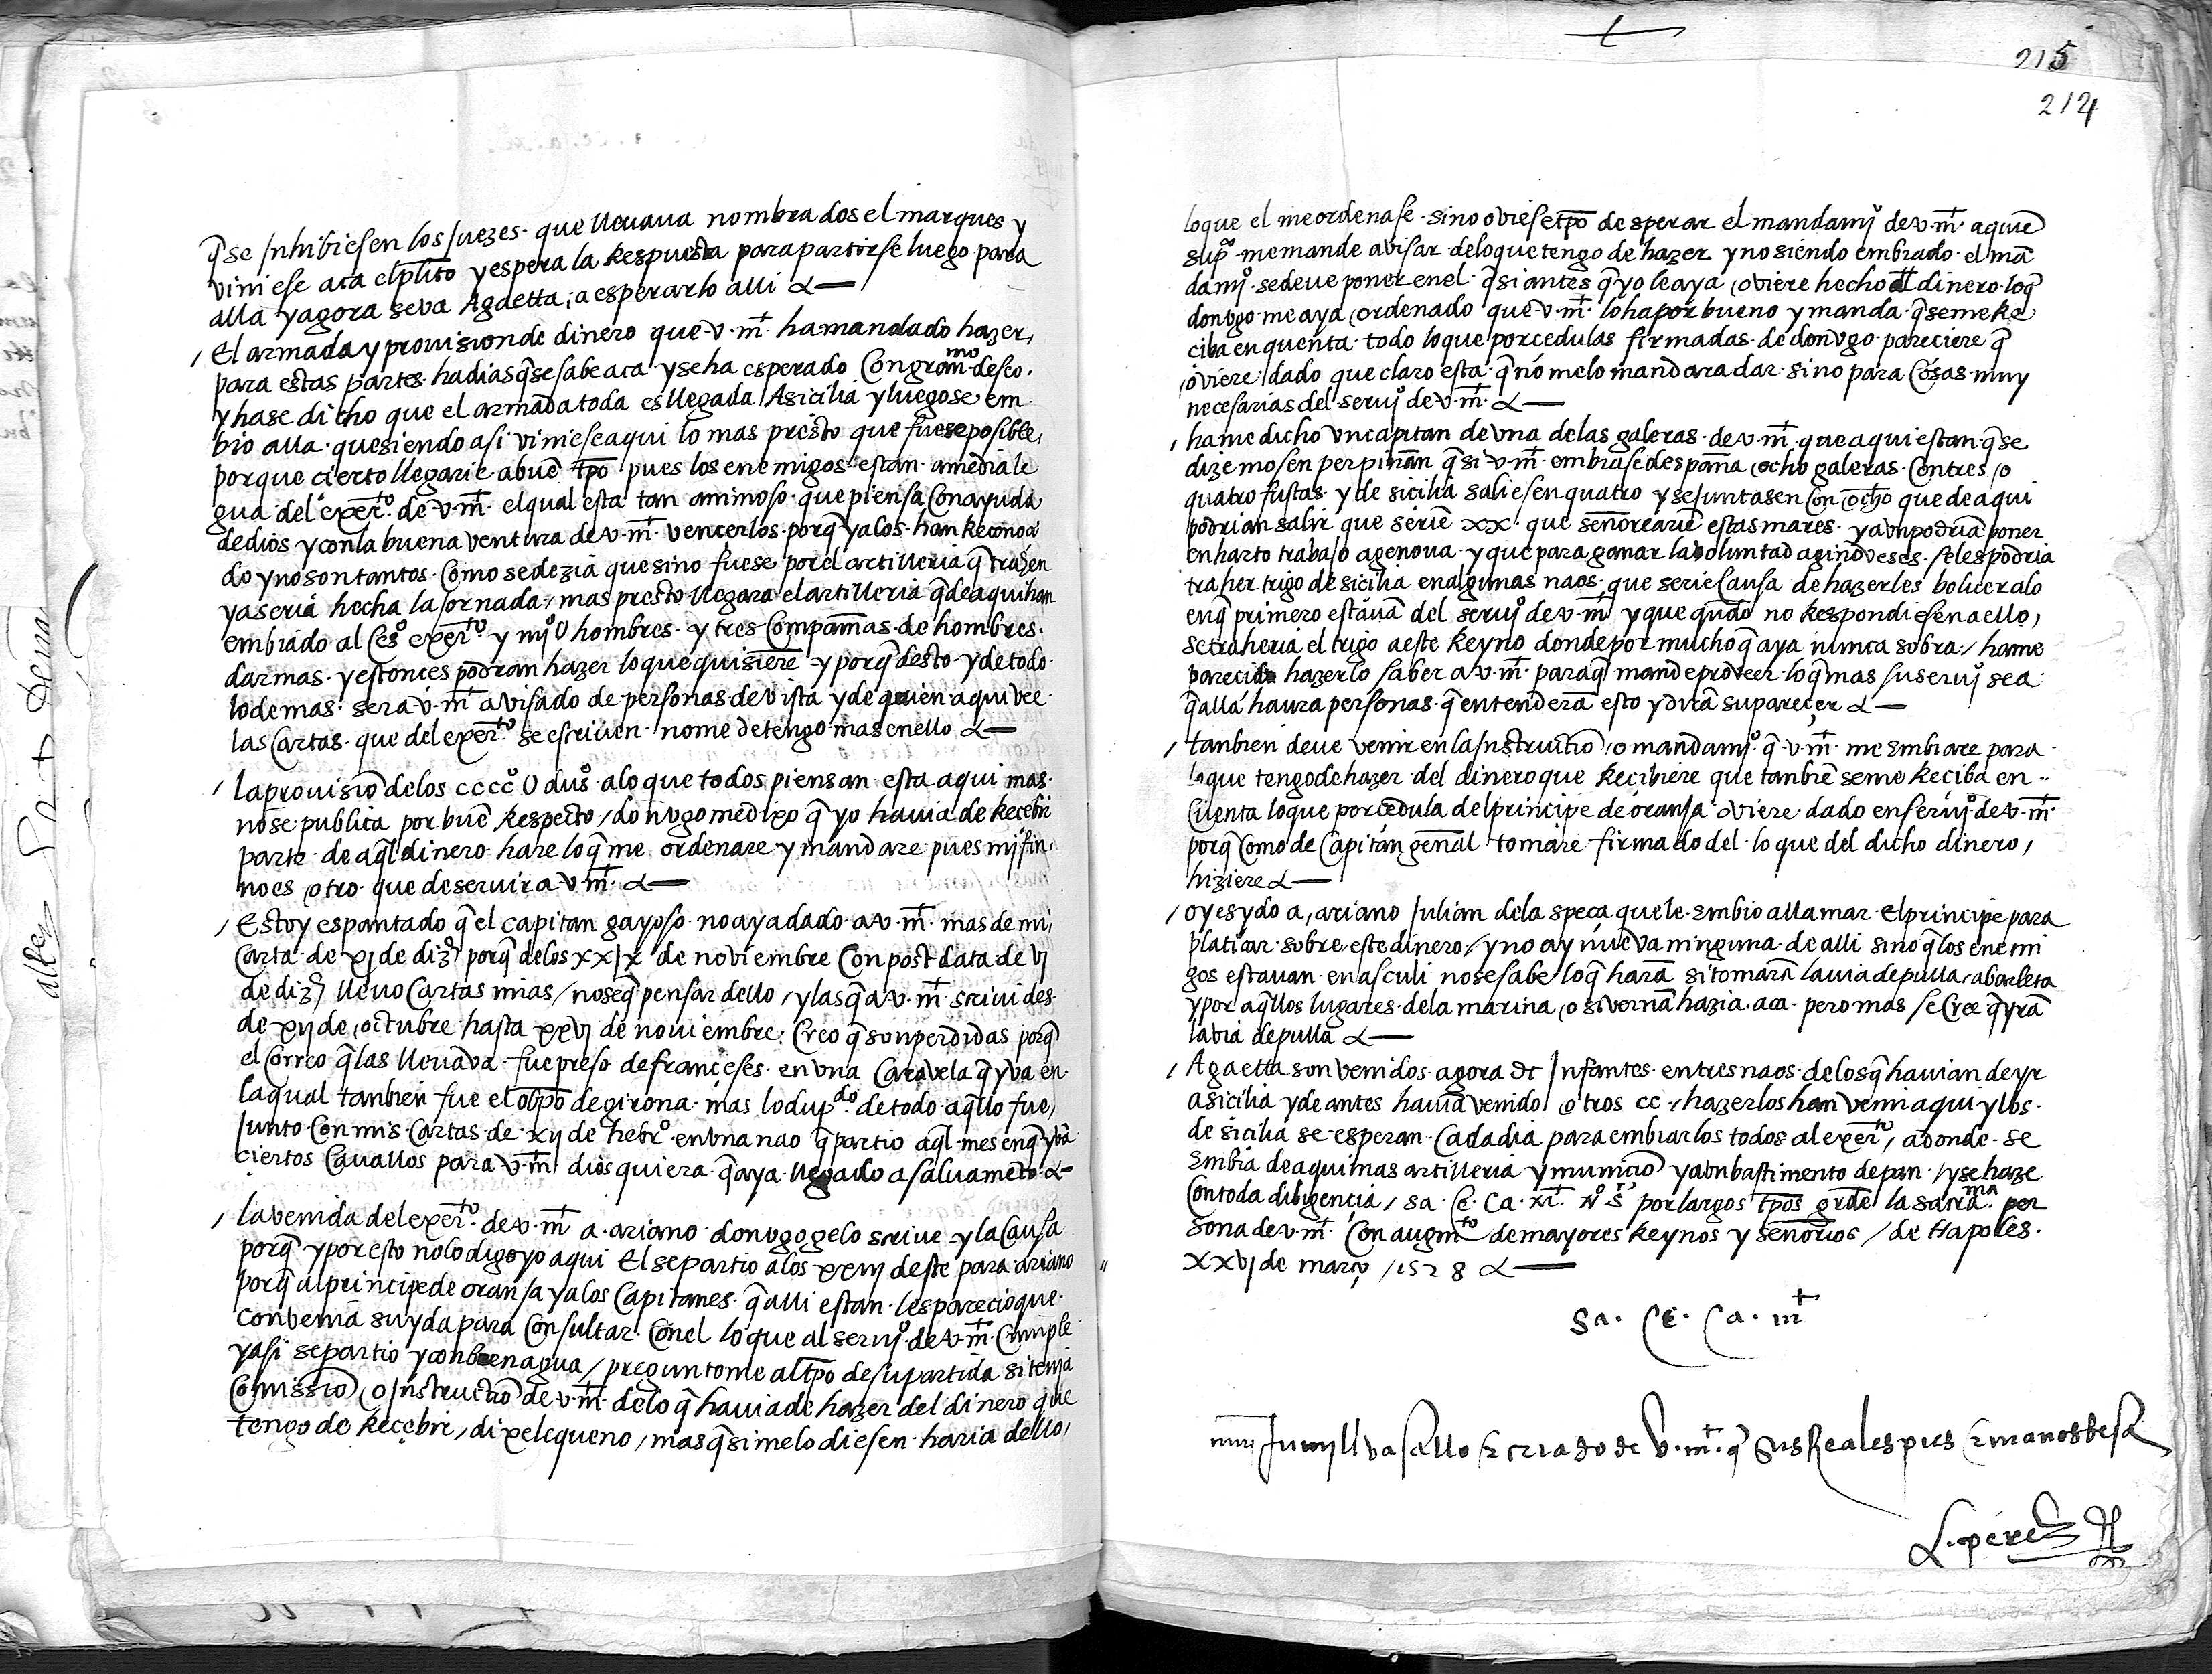 q̄ se Inhibiesen los Juezes · que lleuaua nombrados el marques y
viniese aca el plīto y espera la Respuesta para partirse luego para
alla y agora se va A gaetta; a esperarlo alli
/ El armada y prouision de dinero que v. m̄t. ha mandado hazer,
para estas partes · ha dias q̄ se sabe aca y se ha esperado Con gram̄mo deseo.
y hase dicho que el armada toda es llegada A sicilia y luego se em
bio alla · que siendo asi viniese aqui lo mas presto que fuese posible,
porque cierto llegarie a buē tp̄o pues los enemigos estan · a media le
gua del exerto. de v. m̄t. el qual esta tan animoso · que piensa Con ayuda
de dios y con la buena ventura de v. m̄t. vencerlos · porq̄ ya los · han Reconoci
do y no son tantos · Como se dezia que sino fuese por el artilleria q̄ trahen
ya seria hecha la Jornada / mas presto llegara el artilleria q̄ de aqui han
embiado al Ceso exerto. y mjo U hombres · y tres Compam̄as · de hombres ·
darmas · y estonces podran hazer lo que quisierē · y porq̄ desto · y de todo ·
lo demas · sera v. m̄t avisado de personas de vista y de quien aqui vee ·
las Cartas · que del exerto. se escriuen · no me detengo mas en ello
/ la prouisiō de los cccco U dus · a lo que todos piensan · esta aqui mas ·
no se publica por buē Respecto / dō vgo me dixo q̄ yo hauia de Recebir
parte · de aq̄l dinero hare lo q̄ me · ordenare y mandare pues mj fin,
no es otro · que de seruir a v. m̄t.
/ Estoy espantado q̄ el capitan gayoso · no aya dado · a v. m̄t. mas de mi,
Carta de xj de diz̄e porq̄ de los xxjx de noviembre Con post data de vj
de diz̄e lleuo Cartas mias / no se q̄ pensar dello / y las q̄ a v. m̄t screui des
de xij de, octubre hasta xxvj de nouiembre, Creo q̄ son perdidas porq̄
el Correo q̄ las lleuava fue preso de franceses · en vna Caravela q̄ yva en
la qual tanbien fue el obp̄o de girona · mas lo dupdo. de todo aq̄llo fue,
Junto Con mis Cartas de xij de hebro en vna nao q̄ partio aq̄l mes en q̄ yvā
ciertos Cauallos para v. m̄t dios quiera q̄ aya llegado a saluamēto
/ la venida del exerto. de v. m̄t a · ariano don vgo gelo scriue · y la Causa
porq̄ y por esto no lo digo yo aqui El se partio a los xxiij deste para ariano
porq̄ al principe de oranja y a los Capitanes · q̄ alli estan · les parecio que ·
convenia su yda para Consultar · Con el lo que al serujo de v. m̄t. Cumple
y asi se partio y con buen agua / pregunto me al tp̄o de su partida si tenia
Comissiō / o Instructiō de v. m̄t. de lo q̄ hauia de hazer del dinero que
tengo de Recebir / dixele que no / mas q̄ si me lo diesen haria dello,
215
214
lo que el me ordenase · sino oviese tp̄o de sperar el mandamjo de v. m̄t. a quiē
supco me mande avisar de lo que tengo de hazer y no siendo embiado · el mā
damjo · se deue poner en el · q̄ si antes q̄ yo le aya / oviere hecho del dinero lo q̄
don vgo me aya / ordenado que v. m̄t. lo ha por bueno y manda q̄ se me Re
ciba en quenta todo lo que por cedulas firmadas · de don vgo · pareciere q̄
oviere dado que claro esta q̄ no me lo mandara dar sino para Cosas muy
necesarias del · serujo de v. m̄t.
/ hame dicho vn capitan de vna de las galeras · de v. m̄t que aqui estan q̄ se
dize mosen perpinan q̄ si v. m̄t embiase despaña ocho galeras · Con tres / o
quatro fustas · y de sicilia saliesen quatro y se Juntasen Con ocho que de aqui
podrian salir que seriē xx · que señorearie estas mares · y avn podriā poner
en harto trabajo a genoua · y que para ganar la voluntad a ginoveses · se les podria
traher trigo de sicilia en algunas naos · que serie Causa de hazerles boluer a lo
en q̄ primero estavā del serujo de v. m̄t y que quado no Respondiesen a ello,
se traheria el trigo a este Reyno donde por mucho q̄ aya nunca sobra / hame
parecido hazerlo saber a v. m̄t paraq̄ mande proveer lo q̄ mas su serujo sea
q̄ alla haura personas · q̄ entenderā esto y dirā su parecer
/ tanbien deue venir en la Instructiō / o mandamjo. q̄ v. m̄t. me embiare para ·
lo que tengo de hazer del dinero que Recibiere que tanbiē se me Reciba en
Cuenta lo que por cedula del principe de oranja oviere dado en serujo de v. m̄t.
porq̄ Como de Capitan general tomare firmado del lo que del dicho dinero,
hiziere
/ oy es ydo a, ariano Julian de la speca que le embio allamar · El principe para
platicar sobre este dinero / y no ay nueva ninguna de alli sino q̄ los enemi
gos estauan en asculi no se sabe lo q̄ harā si tomarā la via de pulla, a barleta
y por aq̄llos lugares de la marina, o si vernā hazia · aca · pero mas se Cree q̄ yrā
la via de pulla
/ A gaetta son venidos · agora Infantes · en tres naos · de los q̄ hauian de yr
a sicilia y de antes hauiā venido otros cc · / hazerlos han venir aqui y los ·
de sicilia se esperan · Cada dia para embiarlos todos al exerto, a donde · se
embia de aqui mas artilleria y municiō y avn bastimento de pan · / y se haze
Con toda diligencia / Sa. Ce. Ca. m̄t. no sr por largos tp̄os grde la sacrama. per
sona de v. m̄t. Con augmto de mayores Reynos y señorios / de Napoles ·
xxvj de março / 1528
Sa. Ce. Ca. mt
muy humyll vasallo e criado de v. mt. q̄ sus Reales pies e manos besa
L. pérez